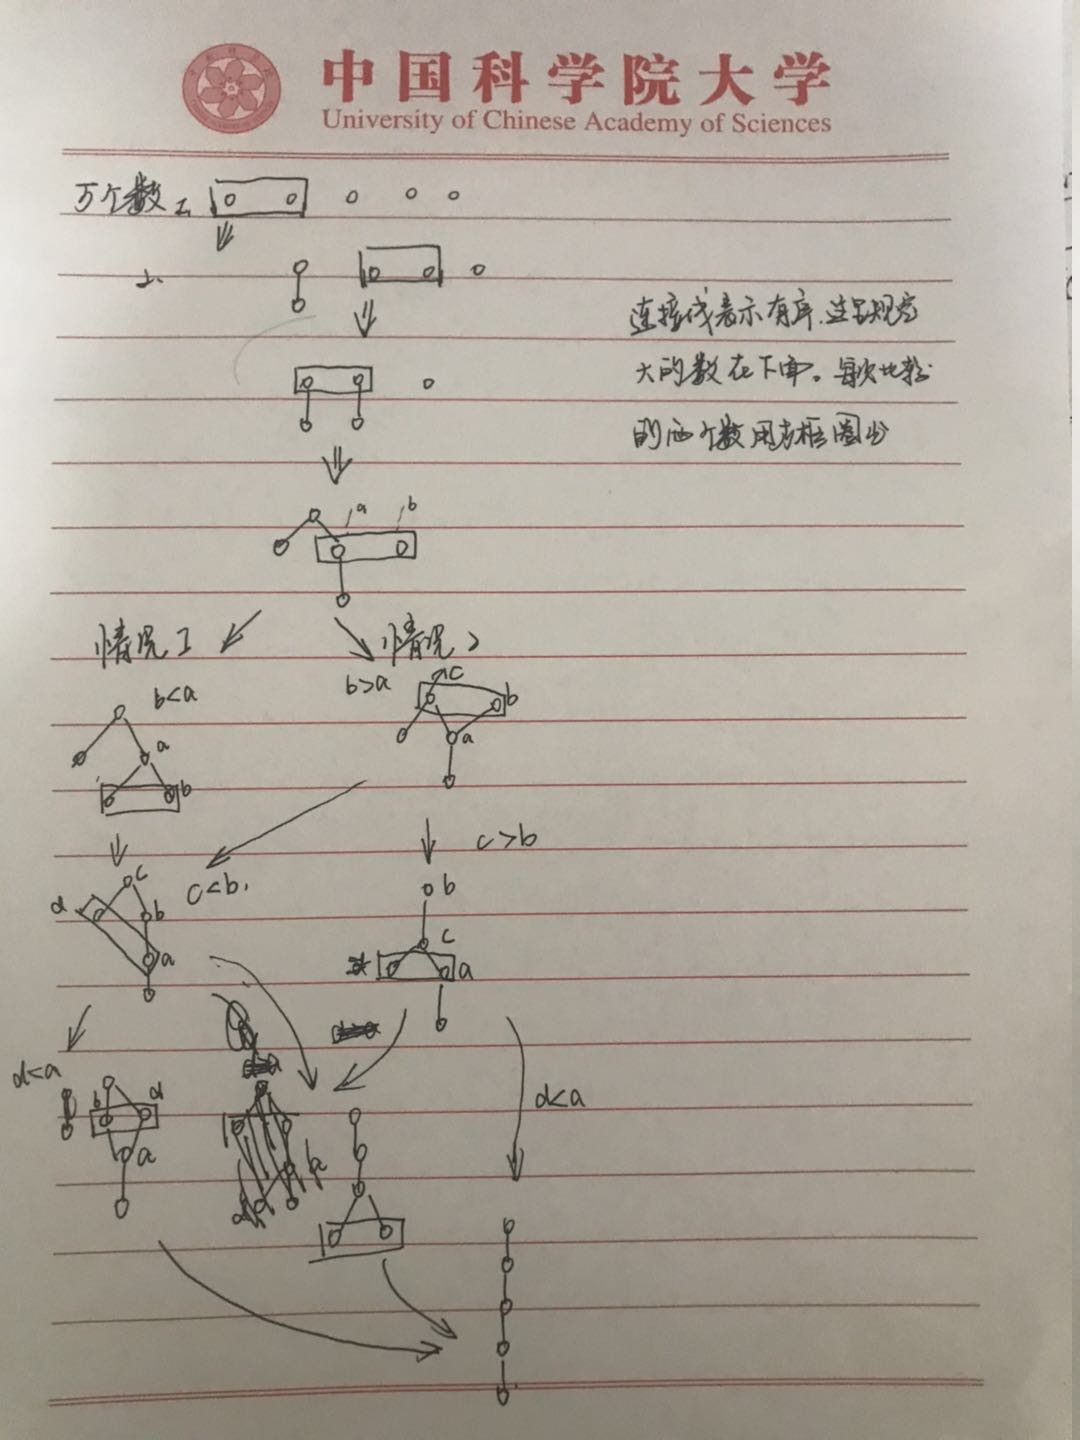 中国科学院大学
University of Chinese Academy of Sciences
5个数 1.
2.
连接线表示有序.这里规定
大的数在下面。每次比较
的两个数用方框圈出
a b
情况1 情况2
b<a b>a
c
b
a a
b
c>b
c c<b. b
d b c
a a
d<a
b d d<a
a